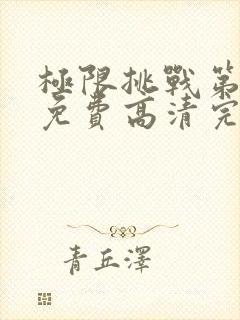 極限挑戰第
免費高清完
青丘澤